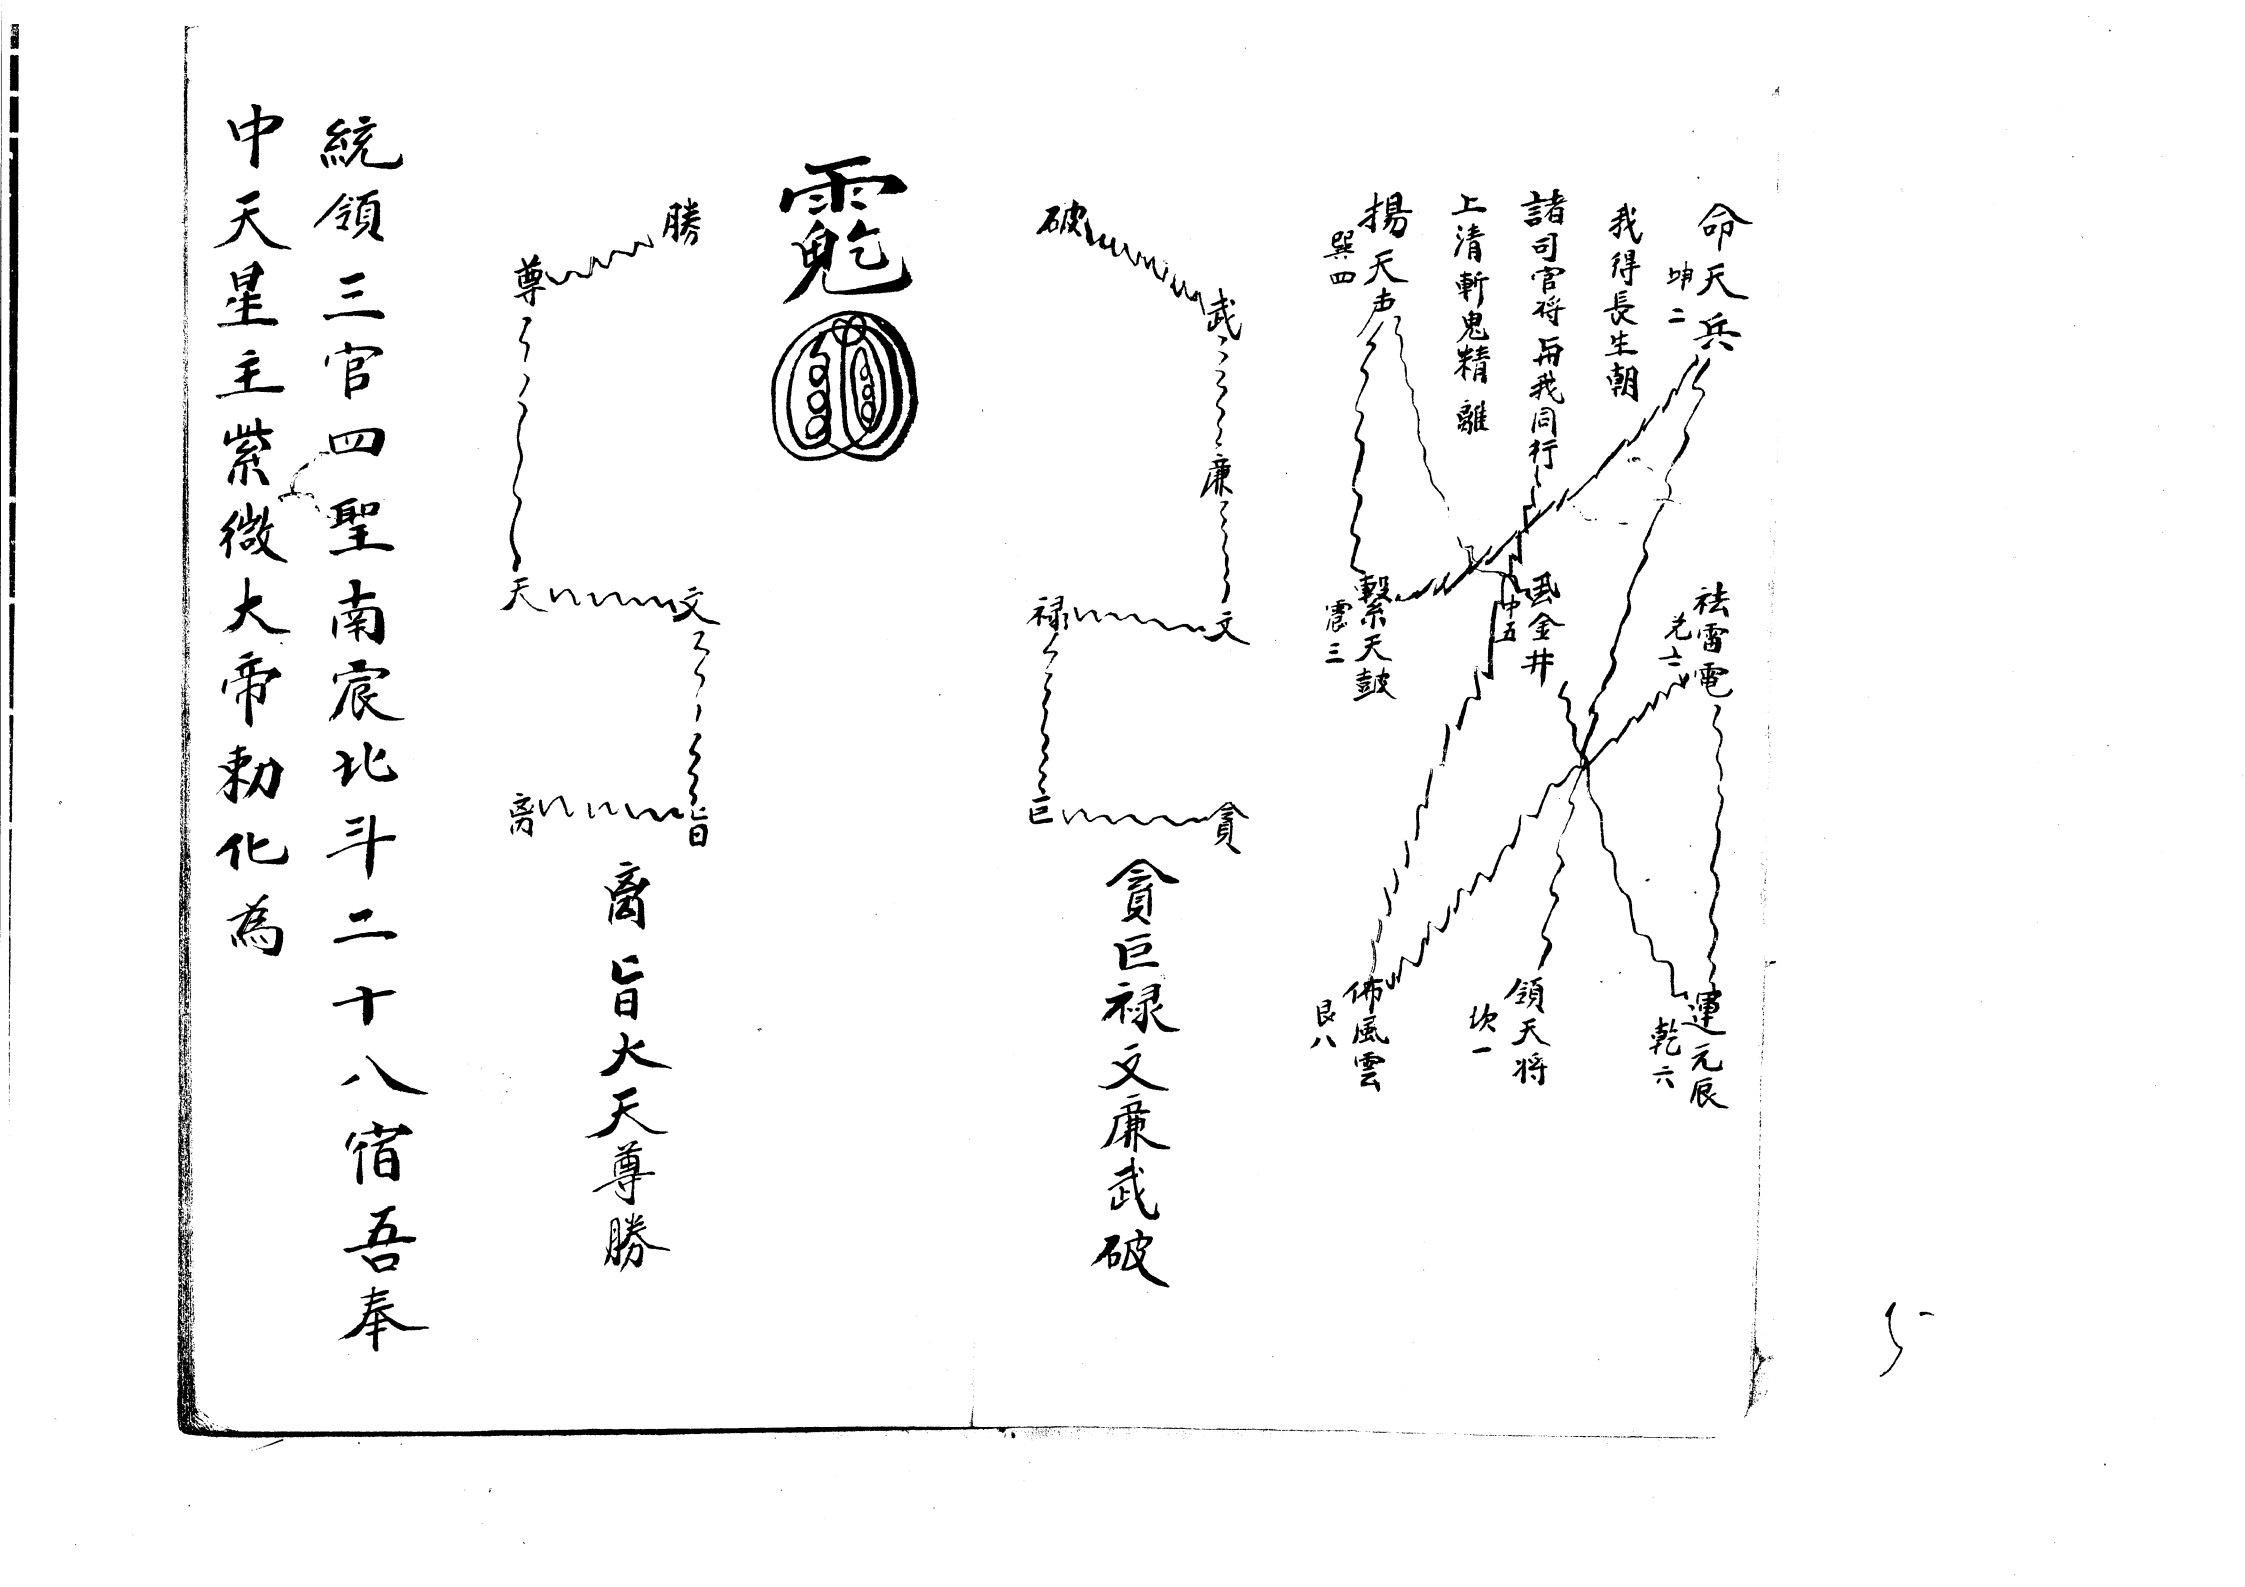 命天兵
坤二
我得長生朝
諸司官将與我同行
上清斬鬼精離
揚天声
巽四
祛雷電
兌七
金井
中五
擊天鼓
震三
運元辰
乾六
領天将
坎一
佈風雲
艮八
破
武
廉
文
禄
巨
貪
貪巨禄文廉武破
勝
尊
天
文
旨
离
离旨大天尊勝
統領三官四聖南宸北斗二十八宿吾奉
中天星主紫微大帝勅化為
5